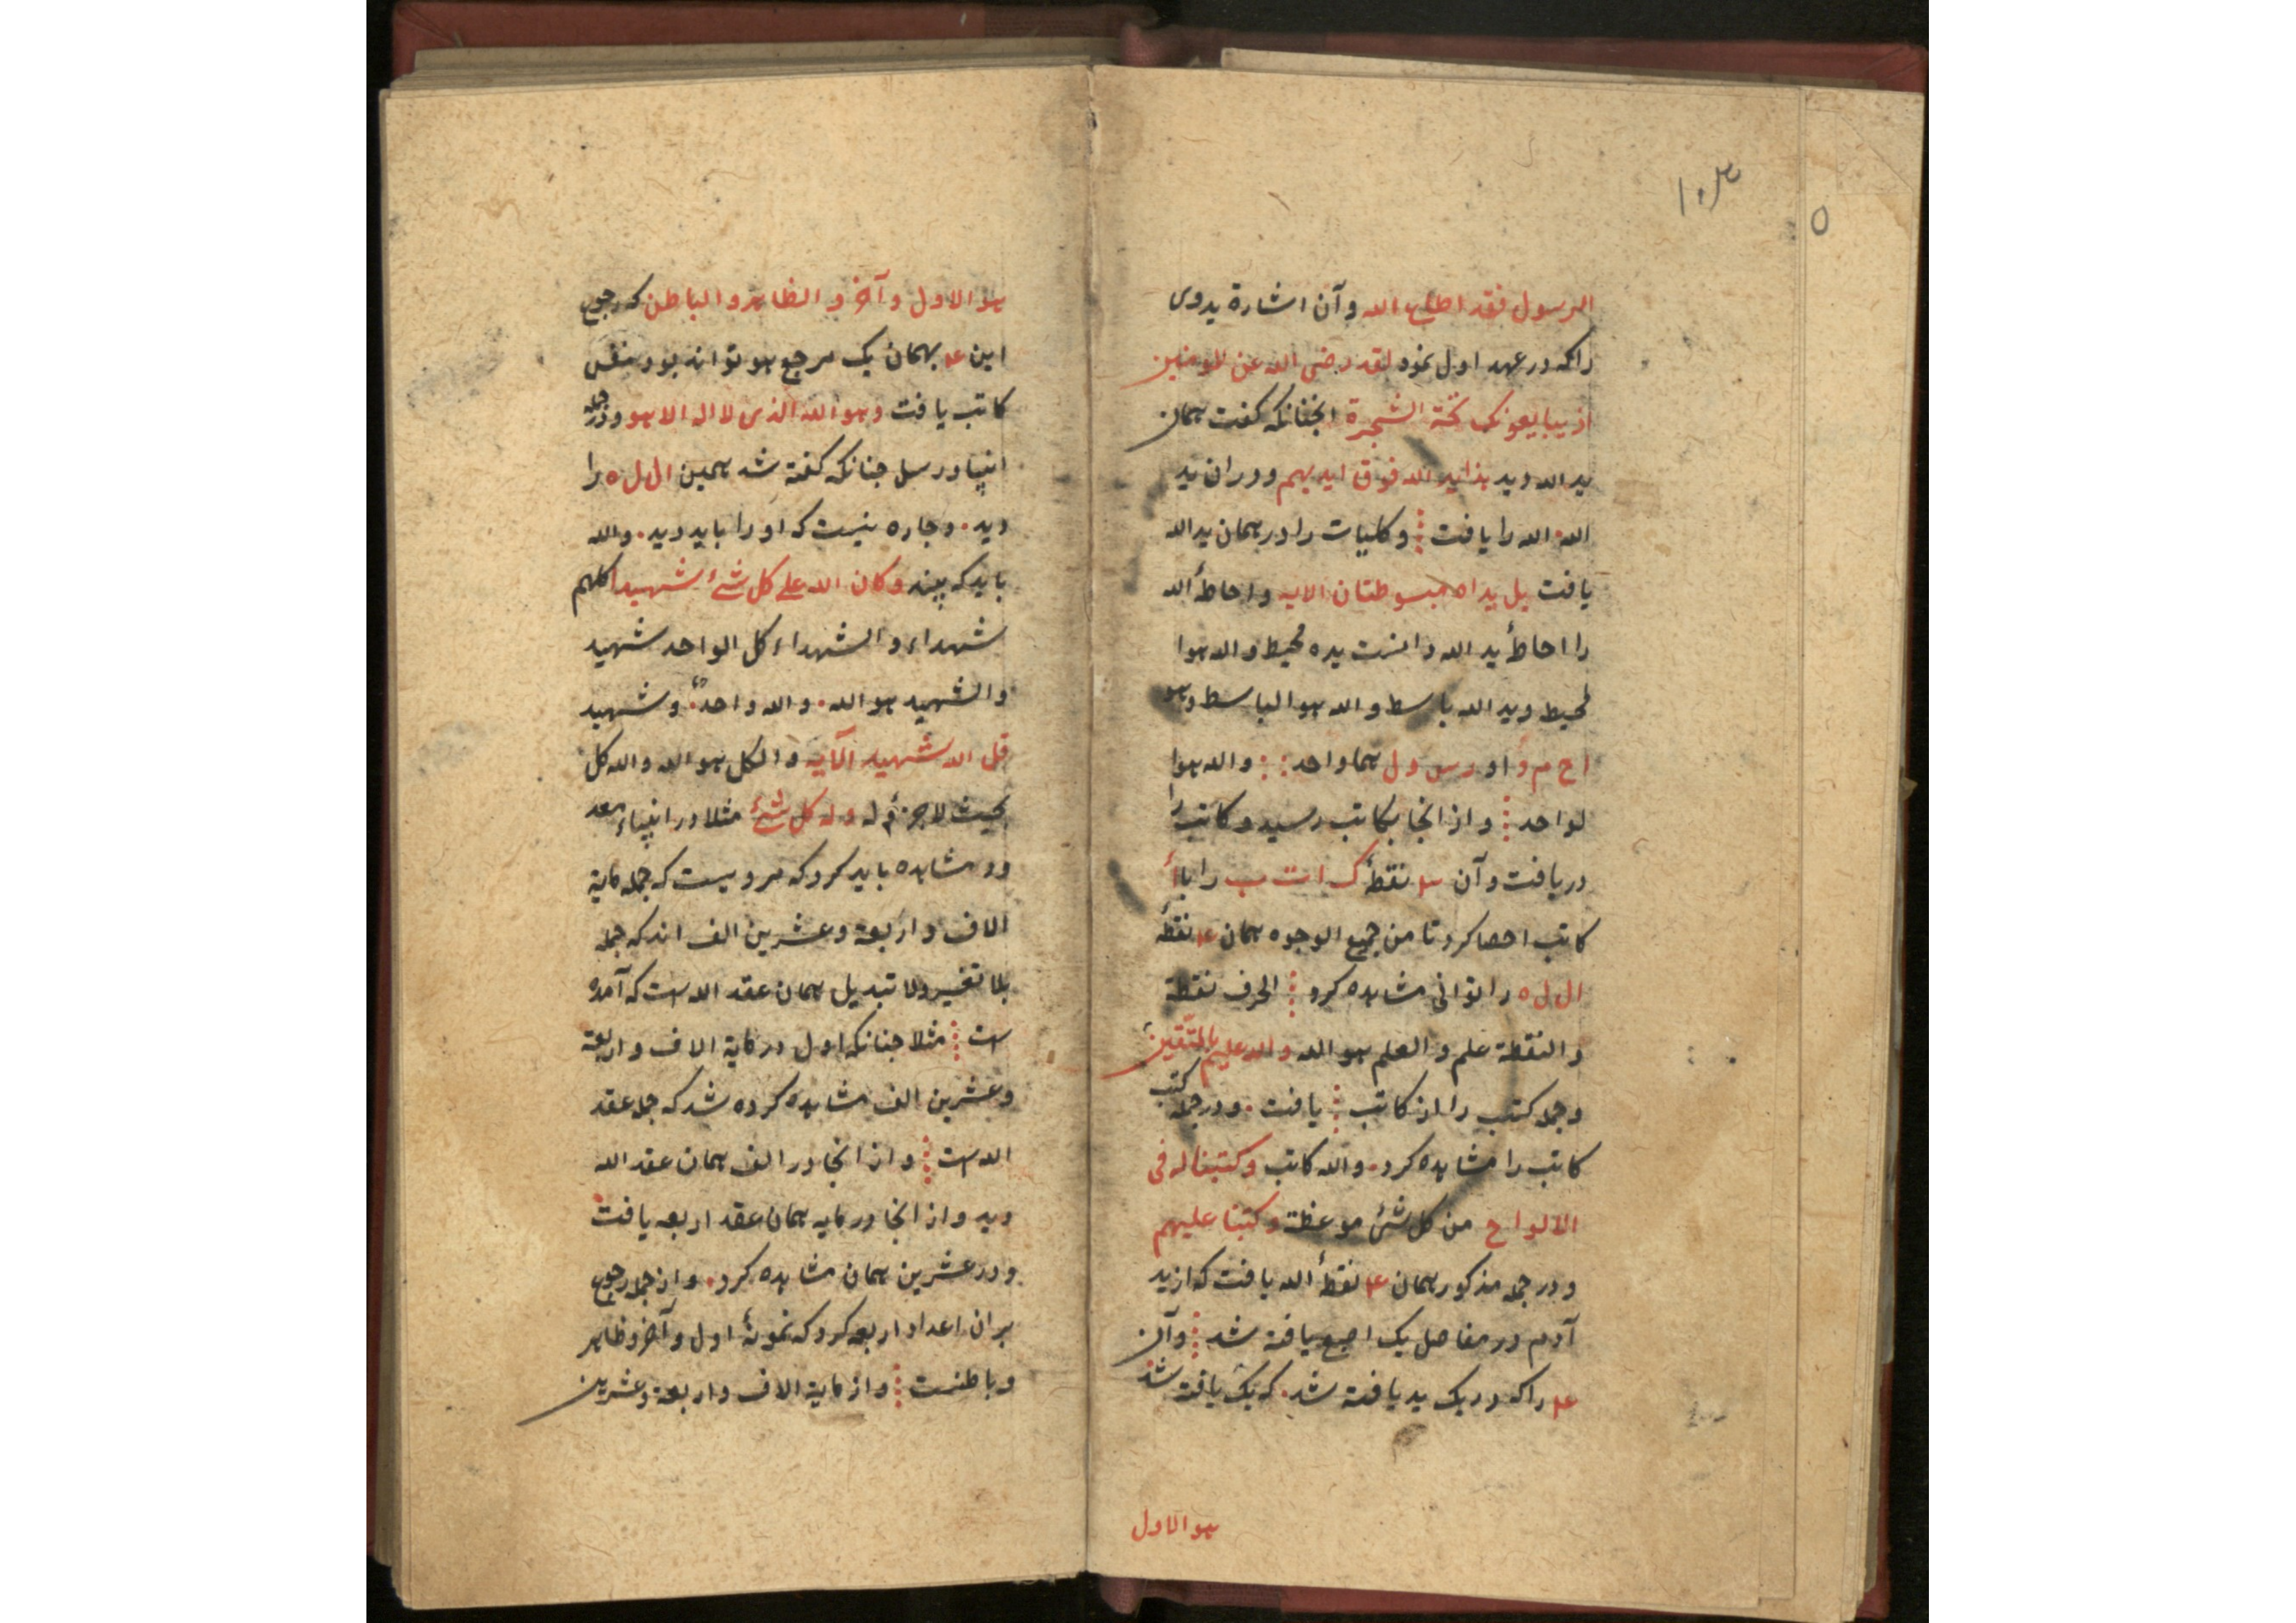 ١٠٣
٥
الرسول فقد اطاع الله وآن اشارة یدوی
راکه در عهد اول نمود لقد رضی الله عن المومنین
اذ یبایعونک تحت الشجرة انچنانکه کفت همان
ید الله دید هذا ید الله فوق ایدیهم ودران ید
الله الله را یافت ⁞ وکلیات را در همان ید الله
یافت بل یداه مبسوطتان الایه واحاطۀ الله
را احاطۀ ید الله دانست یده محیط والله هوا
لمحیط وید الله باسط والله هو الباسط وهو
ا ح م د و ا و ر س و ل هما واحد : : والله هوا
لواحد ⁞ واز انجا بکاتب رسید وکاتب را
دریافت وآن ۴ نقطۀ ک ا ت ب را با
کاتب احصا کرد تا من جمیع الوجوه همان ۴ نقطۀ
ا ل ل ه را توانی مشاهده کرد ⁞ الحرف نقطة
والنقطة علم والعلم هو الله والله علیم بالمتقین
وجمله کتب را از کاتب ⁞ یافت . ودر جمله کتب
کاتب را مشاهده کرد . والله کاتب وکتبنا له فی
الالواح من کل شئ موعظة وکتبنا علیهم
ودر جمله مذکور همان ۴ نقطۀ الله یافت که از ید
آدم در مفاصل یک اصبع یافته شد ⁞ وآن
۴ راکه در یک ید یافته شد . که یک یافته شد
هو الاول
هو الاول وآخر والظاهر والباطن که رجوع
این ۴ بهمان یک مرجع هو تواند بود بنفس
کاتب یافت وهو الله الذی لا اله الا هو ودر جمله
انبیا ورسل چنانکه کفته شد همین ا ل ل ه را
دید . وچاره نیست که او را باید دید . والله
باید که بیند وکان الله علی کل شئ شهیدا کلهم
شهداء والشهداء کل الواحد شهید
والشهید هو الله . والله واحد . وشهید
قل الله شهید الآیه والکل هو الله والله کل
بحیث لاجزء له وله کل شئ مثلا در انبیاء
ود مشاهده باید کرد که مرویست که جمله مایة
الاف واربعة وعشرین الف اند که جمله
بلا تغییر ولا تبدیل همان عقد الله است که آمده
است ⁞ مثلا چنانکه اول در مایة الاف واربعة
وعشرین الف مشاهده کرده شد که جمله عقد
الله است ⁞ واز انجا در الف همان عقد الله
دید واز انجا در مایه همان عقد اربعه یافت
ودر عشرین همان مشاهده کرد . واز جمله رجوع
بران اعداد اربعه کرد که نمونۀ اول وآخر وظاهر
وباطنست ⁞ واز مایة الاف واربعة وعشرین